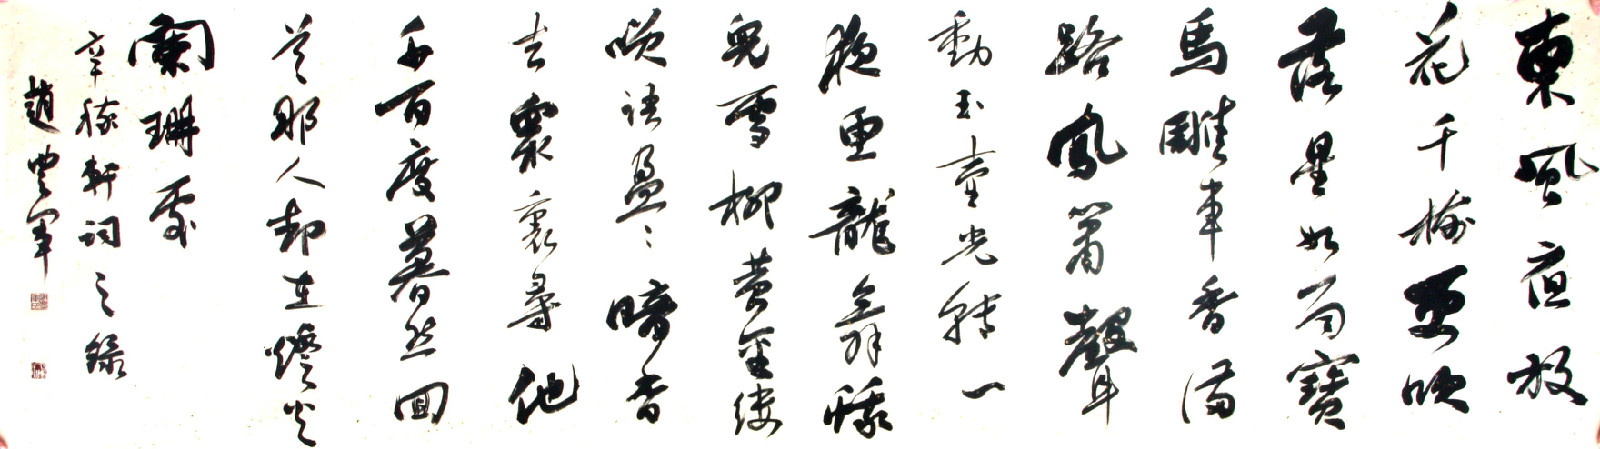 東風夜放
花千樹更吹
落星如雨寶
馬雕車香滿
路鳳簫聲
動玉壺光轉一
夜魚龍舞蛾
兒雪柳黃金縷
咲語盈々暗香
去衆裏尋他
千百度驀然回
首那人却在燈火
闌珊處
辛稼軒詞之錄
趙 軍